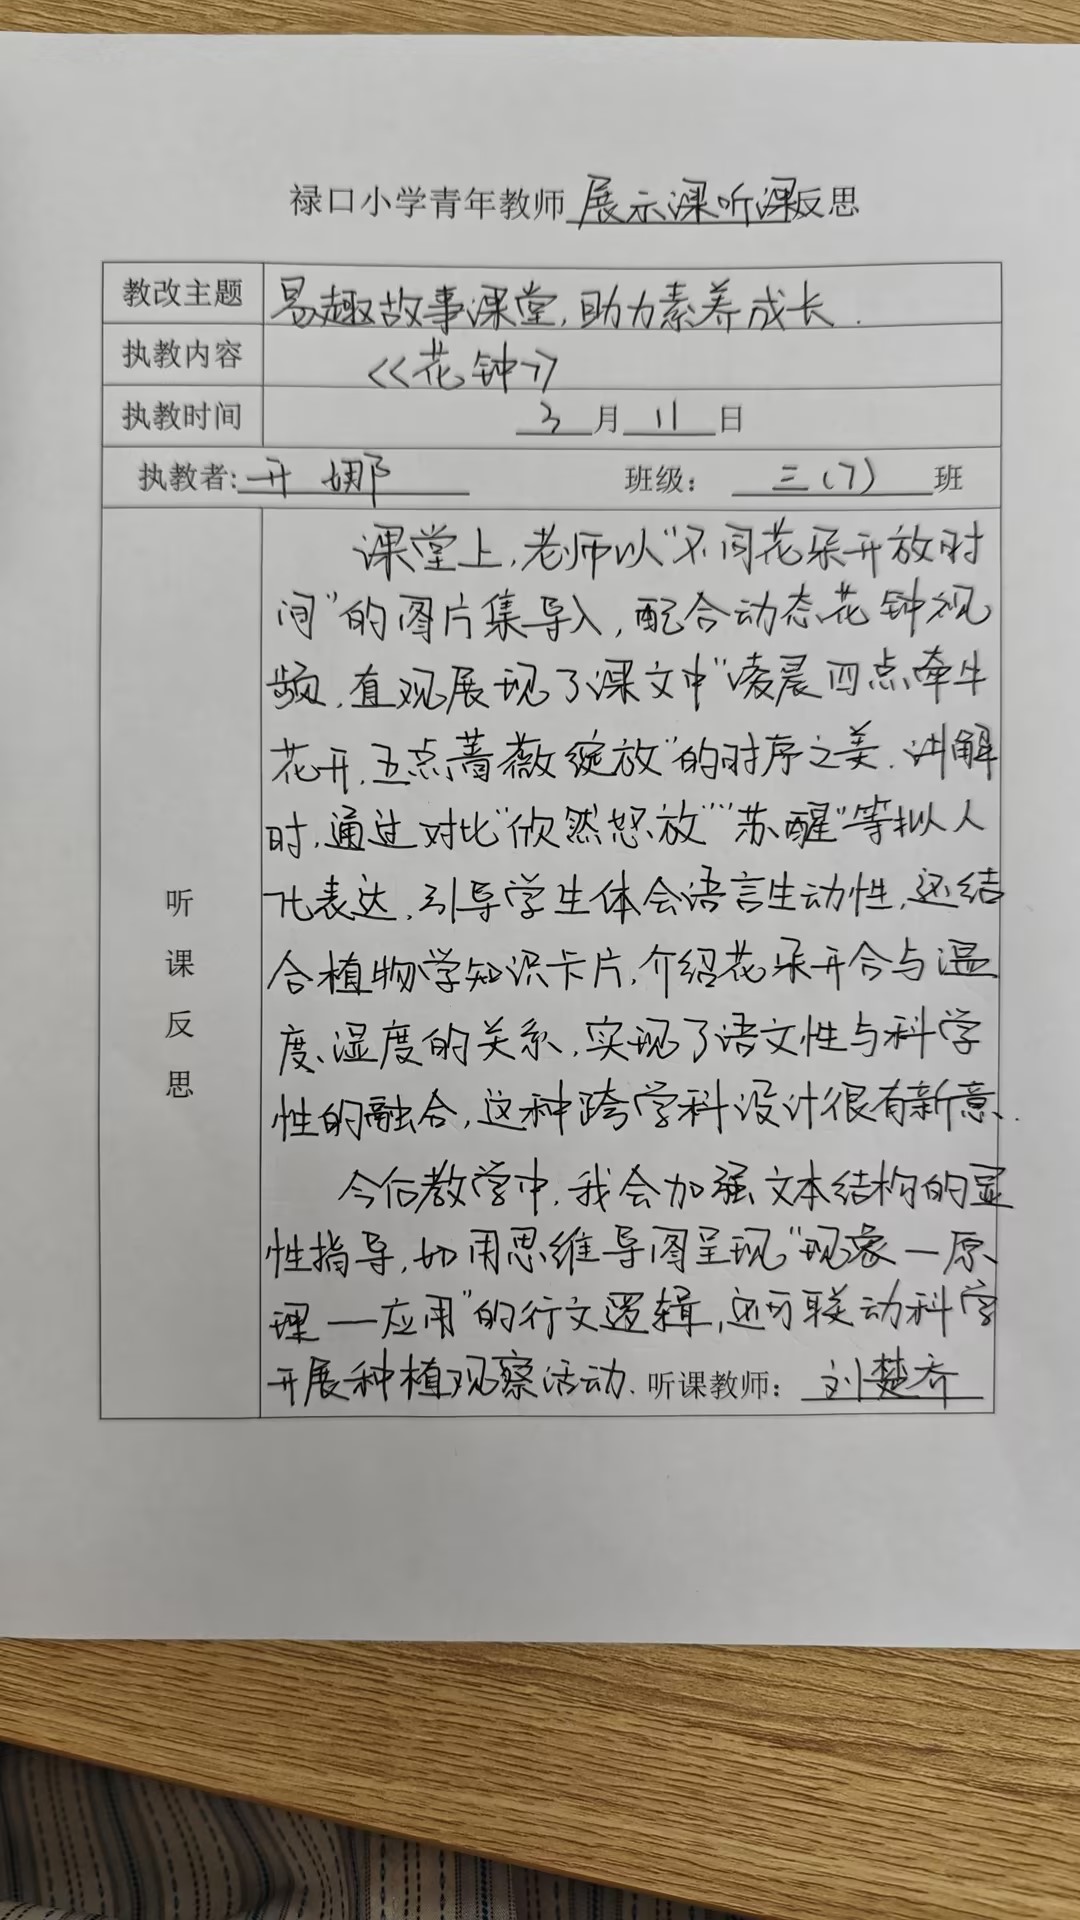 禄口小学青年教师展示课听课反思
教改主题 易趣故事课堂,助力素养成长.
执教内容 《花钟》
执教时间 3月11日
执教者:开娜 班级:三(7)班
听课反思
课堂上,老师以“不同花朵开放时
间”的图片集导入,配合动态花钟视
频,直观展现了课文中“凌晨四点牵牛
花开,五点蔷薇绽放”的时序之美.讲解
时,通过对比“欣然怒放”“苏醒”等拟人
化表达,引导学生体会语言生动性,还结
合植物学知识卡片,介绍花朵开合与温
度、湿度的关系,实现了语文性与科学
性的融合,这种跨学科设计很有新意.
今后教学中,我会加强文本结构的显
性指导,如用思维导图呈现“现象—原
理—应用”的行文逻辑,还可联动科学
开展种植观察活动. 听课教师:刘楚乔